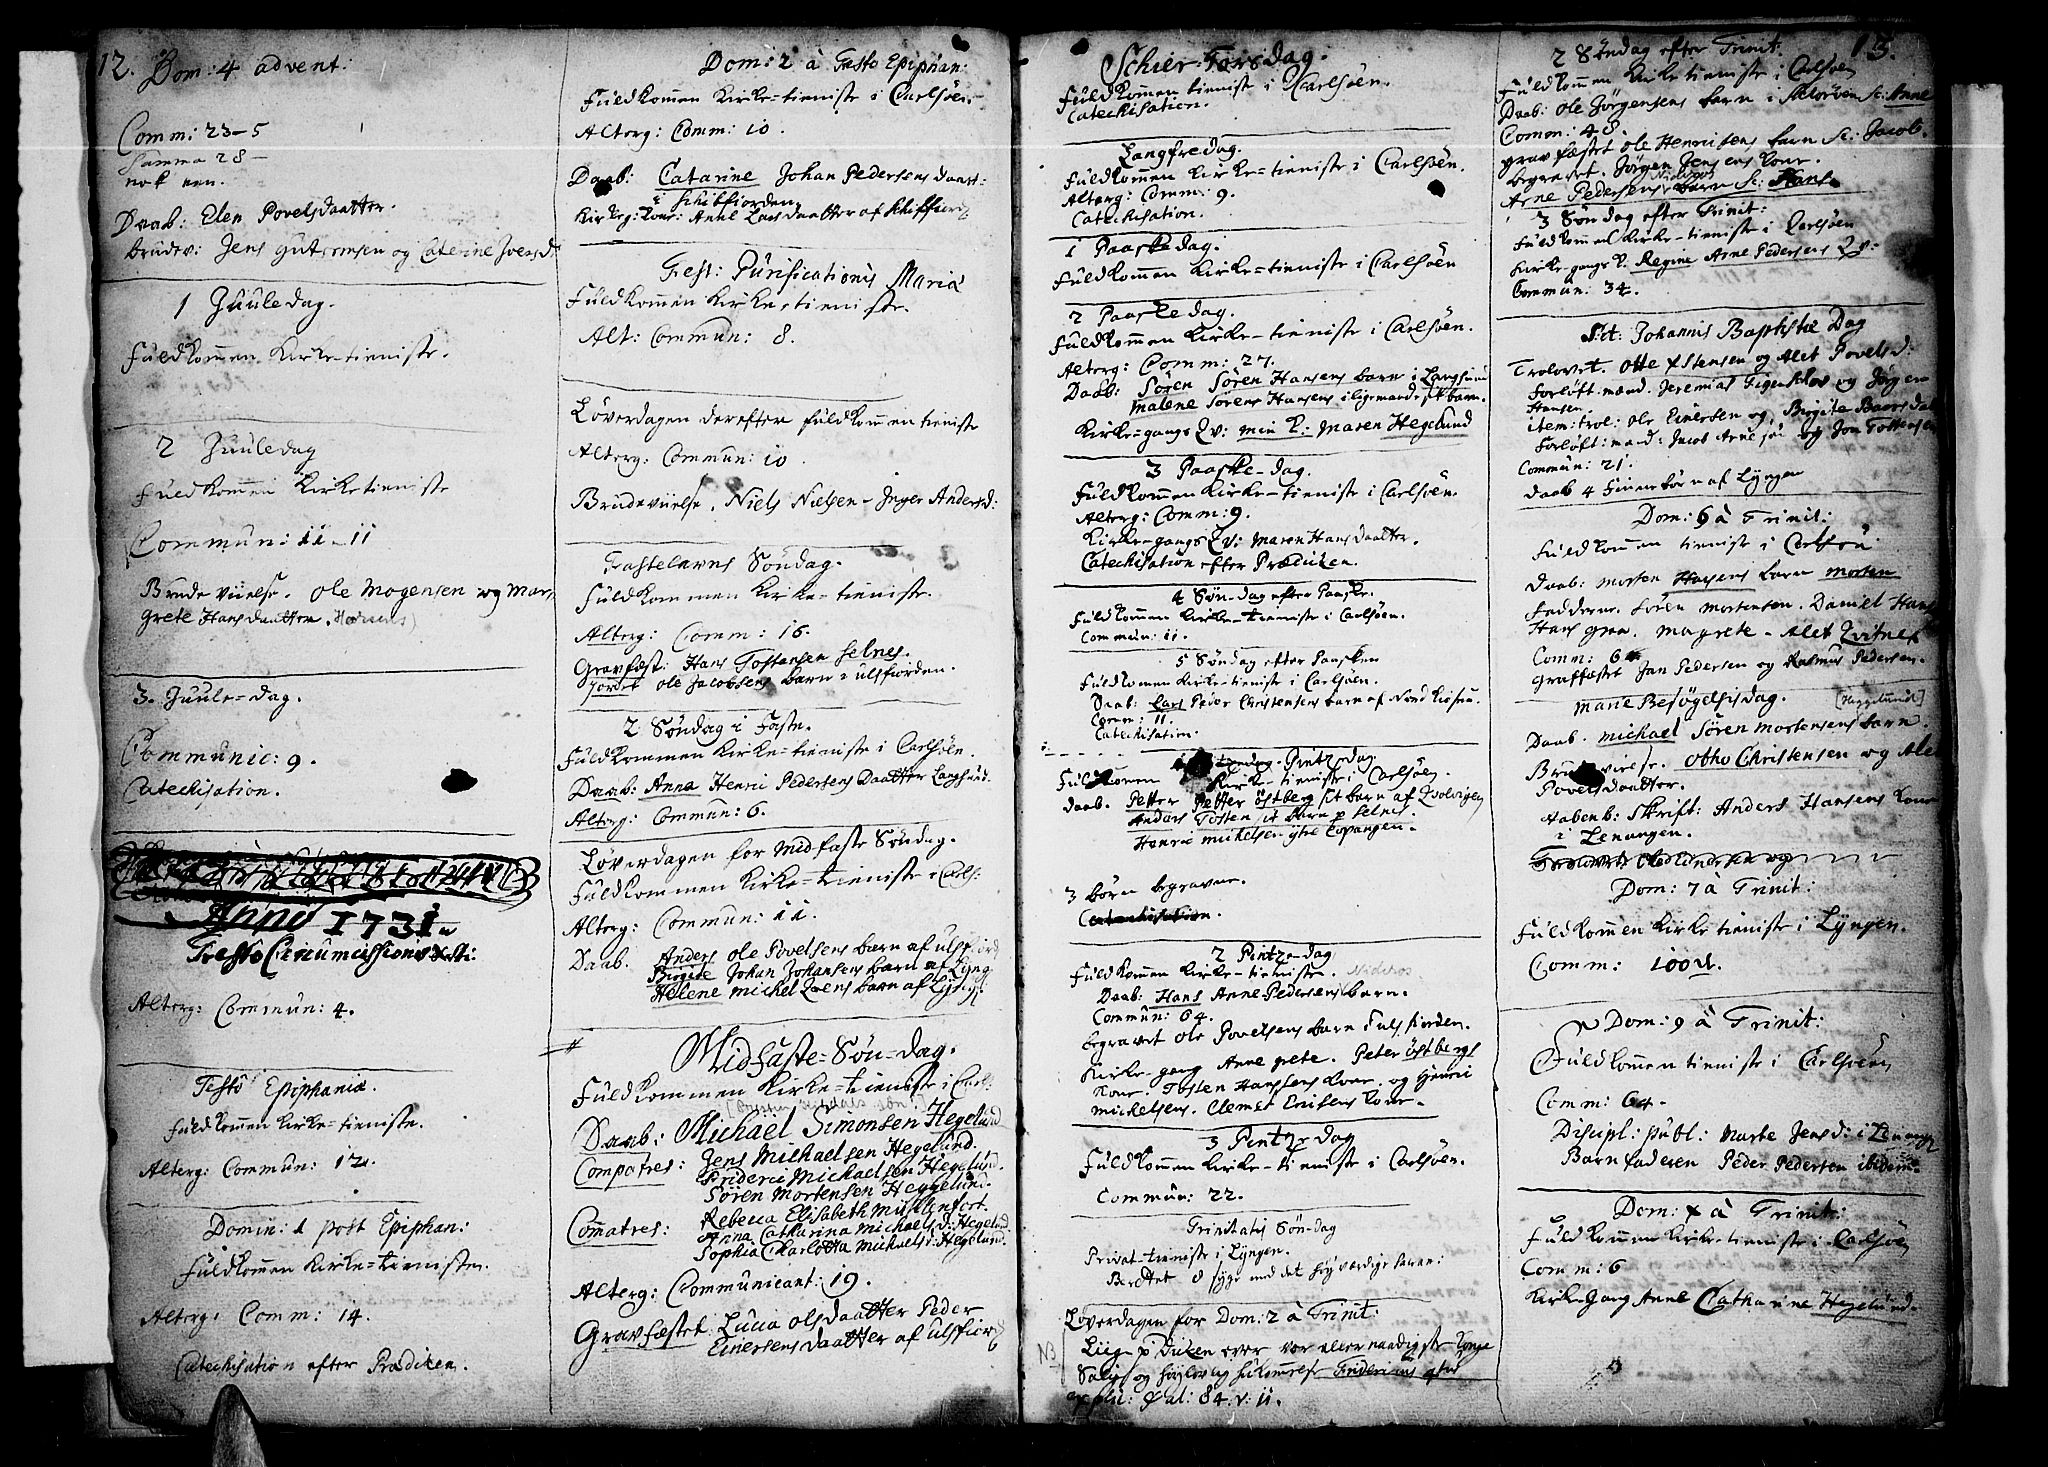 12. Dom: 4 advent:
Comm: 23–5
Summa 28 –
nok een.
Daab: Elen Povelsdaatter.
Brudev: Jens Guttormsen og Caterine Iversd:
1 Juuledag.
Fuldkommen Kirke-tieniste.
2 Juuledag
Fuldkommen Kirketieniste
Commun: 11–11
Brude viielse. Ole Mogensen og Mar-
grete Hansdaatter.
3. Juule-dag.
Communic: 9.
Catechisation.
Anno 1731.
Festo Circumcissionis Xsti:
Alterg: Commun: 4.
Festo Epiphaniæ.
Fuldkommen Kirke-tieniste.
Alterg: Commun: 12.
Domin: 1 post Epiphan:
Fuldkommen Kirke-tieniste.
Alterg: Comm: 14.
Catechisation efter Prædiken.
Dom: 2 à Festo Epiphan:
Fuldkommen Kirke-tieniste i Carlsöen.
Alterg: Comm: 10.
Daab: Catarine Johan Pedersens Daatt:
i Skibfiorden
Kirkeg: Kone: Anne Larsdaatter af Skibfiord
Fest: Purificationis Mariæ
Fuldkommen Kirke-tieniste.
Alt: Commun: 8.
Løverdagen derefter fuldkommen tieniste
Alterg: Commun: 10.
Brudeviielse. Niels Nielsen – Inger Andersd:
Fastelavns Søndag.
Fuldkommen Kirke-tieniste.
Alterg: Comm: 16.
Gravfæst: Hans Tostensen Selnes.
Jordet Ole Jacobsens barn i Ulsfiorden.
2 Søndag i Faste.
Fuldkommen Kirke-tieniste i Carlsöen.
Daab: Anna Henric Pedersens Daatter Langsund.
Alterg: Commun: 6.
Løverdagen for Midfaste Søndag.
Fuldkommen Kirke-tieniste i Carls:
Alterg: Commun: 11.
Daab: Anders Ole Povelsens barn af Ulsfiord
Birgite Johan Johansens barn af Lyng
Helene Michel barn af Lyng
Midfaste-Søn-dag.
Fuldkommen Kirke-tieniste i Carls:
Daab: Michael Simonsen Hegelund
Compatres: Jens Michaelsen Hegelund.
Frideric Michaelsen Hegelund.
Sören Mortensen Heggelund.
Commatres: Rebecca Elisabeth
Anna Catharina Michaelsd: Hegelund.
Sophia Charlotta Michaelsd: Hegelund.
Alterg: Communicant: 19.
Gravfæstet: Lucia Olsdaatter Peder
Einersens daatter af Ulsfiord
Schier-Torsdag.
Fuldkommen tieniste i Carlsöen.
Catechisation.
Langfredag.
Fuldkommen Kirke-tieniste i Carlsöen.
Alterg: Comm: 9.
Catechisation.
1 Paaskedag.
Fuldkommen Kirke-tieniste i Carlsöen
2 Paaskedag.
Fuldkommen Kirke-tieniste i Carlsöen.
Alterg: Comm: 27.
Daab: Sören Sören Hansens barn i Langsund
Malene Sörens Hansens barn.
Kirke-gangs Qv: min K: Maren Hegelund
3 Paaske-dag.
Fuldkommen Kirke-tieniste i Carlsöen.
Alterg: Comm: 9.
Kirke-gangs Qv: Maren Hansdaatter.
Catechisation efter Prædiken.
4 Søn-dag efter Paaske.
Fuldkommen Kirke-tieniste i Carlsöen.
Commun: 11.
5 Søndag efter Paasken
Fuldkommen Kirke-tieniste i Carlsöen.
Daab: Lars Peder Christensens barn af
Comm: 11.
Catechisation.
Pintzedag
Fuldkommen Kirke-tieniste i Carlsöen.
Daab. Petter Petter Östberg sit barn af
Anders Tosten sit barn Selnes.
Henric Michelsen
3 børn begravne.
Catechisation.
2 Pintze-dag
Fuldkommen Kirke-tieniste.
Daab: Hans Arne Pedersens barn.
Commun: 64.
begravet Ole Povelsens barn i Ulsfiorden.
Kirke-gang Anne Grete. Peter Östbergs
Kone. Tosten Hanssens Kone. og Henric
Michelsens. Clemet Kone.
3 Pintze dag
Fuldkommen Kirke-tieniste i Carlsöen.
Commun: 22.
Trinitatis Søn-dag
Privat-tieniste i Lyngen.
syge med det høyværdige
Løverdagen for Dom: 2 à Trinit:
NB Liig-p Diken over vor allernaadigste Konge
Salig og höylovlig ihukommelse Fridericus 4tus
Psal: 84. v: 11.
13.
2 Søndag efter Trinit:
Fuldkommen Kirke tieniste i Carlsöen
Daab: Ole Jörgensens barn i Anne
Comm: 48.
gravfæstet Ole Henricsens barn Jacob.
begravet. Jörgen Jensens Kone.
Arne Pedersens barn Hans.
3 Søndag efter Trinit:
Fuldkommen Kirke-tieniste i Carlsöen
Kirke gangs K. Regine Arne Pedersens Qv:
Commun: 34.
St: Johannis Baptistæ Dag
Trolovet. Otte Xstensen og Alet Povelsd:
Forløft. mænd. Jeremias og Jörgen
Hansen
item: trol: Ole Einersen og Birgite
Forløft: mænd: Jacob og Jon
Commun: 21.
Daab 4 Finne börn af Lyngen
Dom: 6 à Trinit:
Fuldkommen tieniste i Carlsöen
Daab: Morten Hansens barn Morten
Fadderne. Sören Mortensen. Daniel Hans
Hans Margrete – Alet
Comm: 6
Graffæstet Jan Pedersen og Rasmus Pedersen.
Marie Besøgelsisdag. [Heggelund]
Daab. Michael Sören Mortensens barn.
Otho Christensen og Alet
Povelsdaatter.
Skrift: Anders Hansens Kone
i Lenangen.
Dom: 7 à Trinit:
Fuldkommen Kirke tieniste i Lyngen.
Comm: 100
Dom: 9 à Trinit:
Fuldkommen tieniste i Carlsöen
Comm: 64.
Discipl: publ: Marte Jensd: i Lenangen
Barnfaderen Peder Pedersen ibidem.
Dom: X à Trinit:
Fuldkommen Kirke-tieniste i Carlsöen
Comm: 6
Kirke-gang Anne Catharine Hegelund.